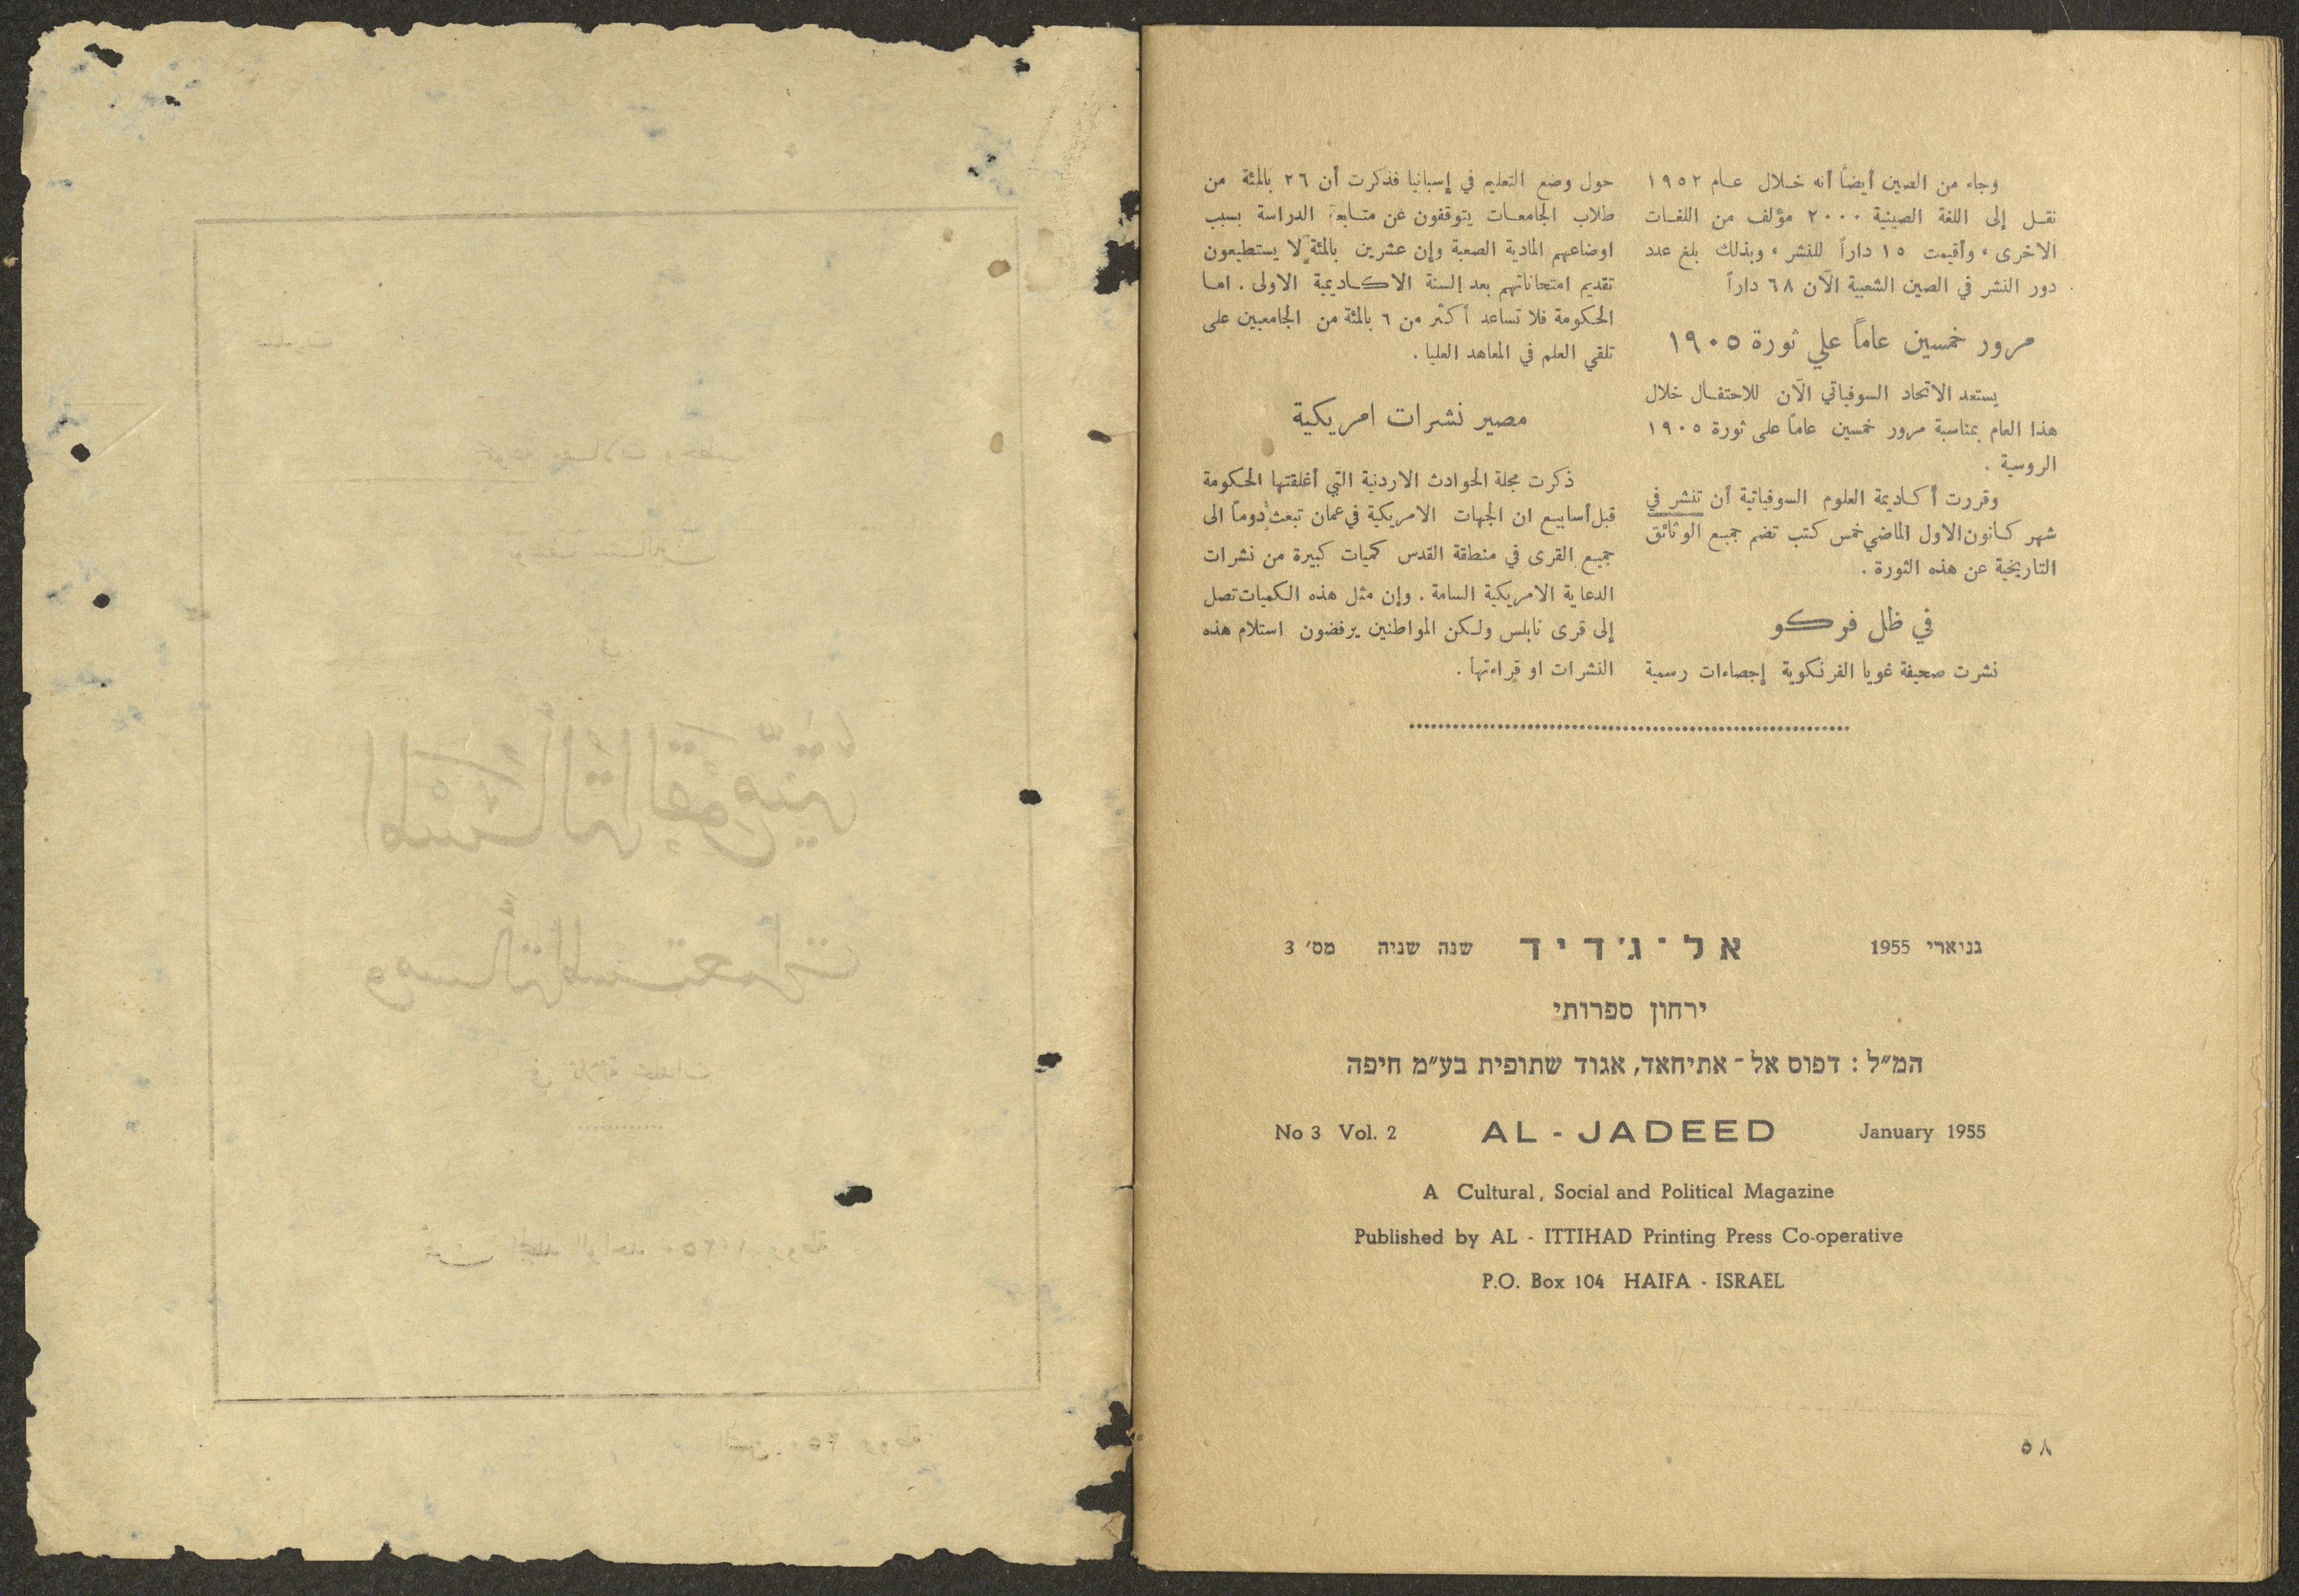 وجاء من الصين أيضاً أنه خلال عام ١٩٥٢
نقل إلى اللغة الصينية ٢٠٠٠ مؤلف من اللغات
الاخرى ، وأقيمت ١٥ داراً للنشر ، وبذلك بلغ عدد
دور النشر في الصين الشعبية الآن ٦٨ داراً
مرور خمسين عاماً على ثورة ١٩٠٥
يستعد الاتحاد السوفياتي الآن للاحتفال خلال
هذا العام بمناسبة مرور خمسين عاماً على ثورة ١٩٠٥
الروسية .
وقررت أكاديمة العلوم السوفياتية أن تنشر في
شهر كانون الاول الماضي خمس كتب تضم جميع الوثائق
التاريخية عن هذه الثورة .
في ظل فركو
نشرت صحيفة غويا الفرنكوية إحصاءات رسمية
حول وضع التعليم في إسبانيا فذكرت أن ٢٦ بالمئة من
طلاب الجامعات يتوقفون عن متابعة الدراسة بسبب
اوضاعهم المادية الصعبة وإن عشرين بالمئة لا يستطيعون
تقديم امتحاناتهم بعد السنة الاكاديمية الاولى . اما
الحكومة فلا تساعد أكثر من ٦ بالمئة من الجامعيين على
تلقي العلم في المعاهد العليا .
مصير نشرات امريكية
ذكرت مجلة الحوادث الاردنية التي أغلقتها الحكومة
قبل أسابيع ان الجهات الامريكية في عمان تبعث دوماً الى
جميع القرى في منطقة القدس كميات كبيرة من نشرات
الدعاية الامريكية السامة . وإن مثل هذه الكميات تصل
إلى قرى نابلس ولكن المواطنين يرفضون استلام هذه
النشرات او قراءتها .
גניארי 1955 אל־ג׳דיד שנה שניה מס׳ 3
ירחון ספרותי
המ״ל : דפוס אל־אתיחאד, אגוד שתופית בע״מ חיפה
No 3 Vol. 2 AL - JADEED January 1955
A Cultural, Social and Political Magazine
Published by AL - ITTIHAD Printing Press Co-operative
P.O. Box 104 HAIFA - ISRAEL
٥٨